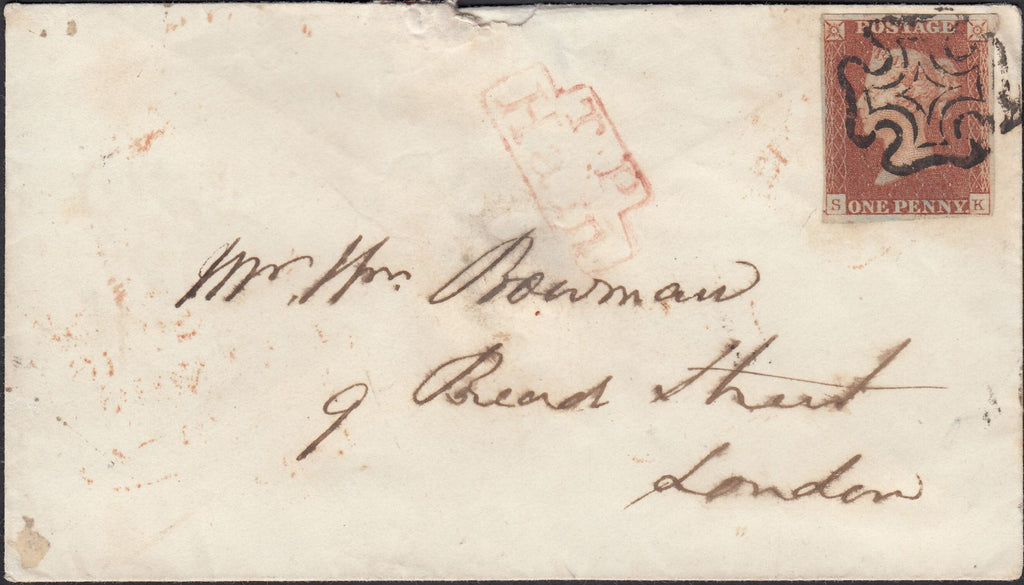 POSTAGE
S ONE PENNY. K
T.P
Mr. Wm. Bowman
9 Bread Street
London